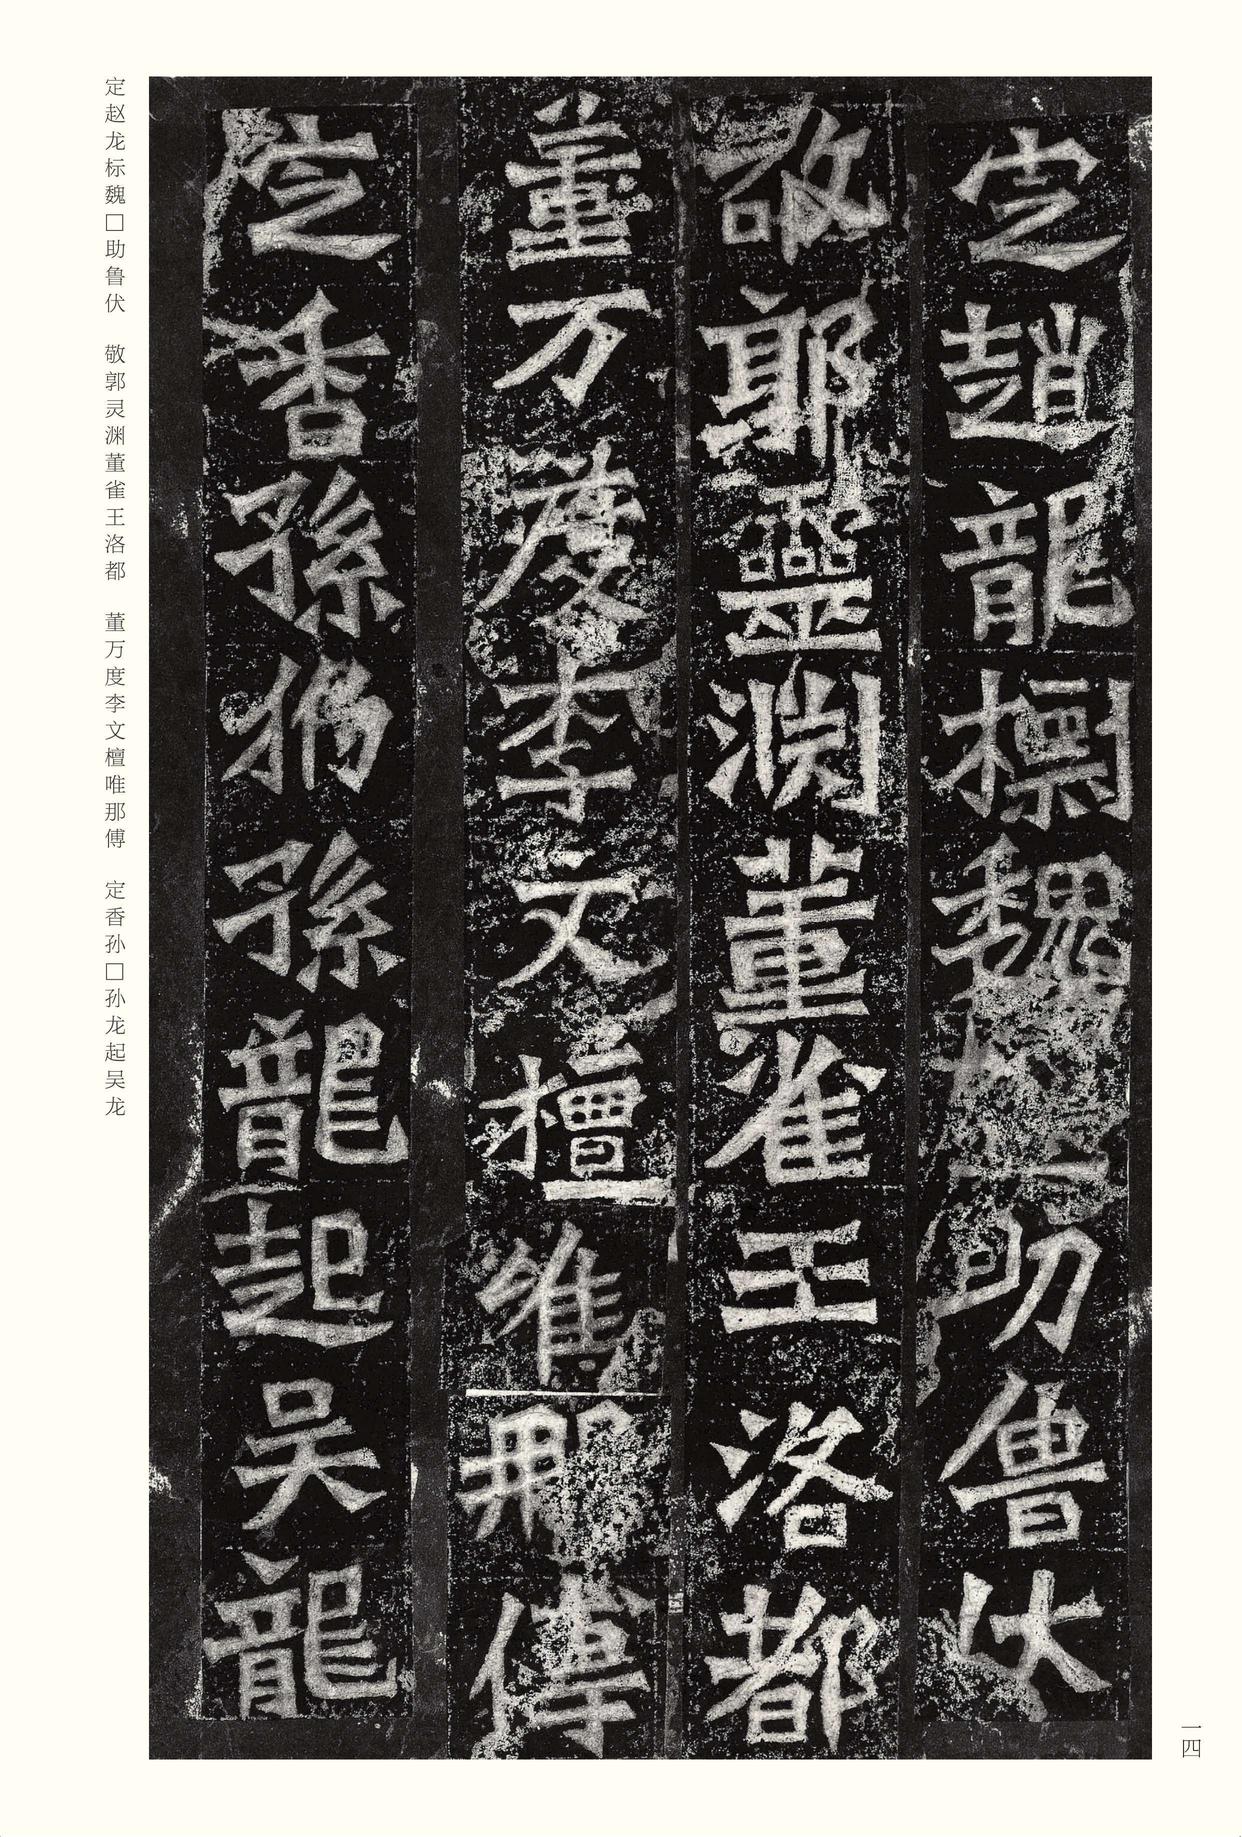 一四
定趙龍標魏助魯伏
敬郭靈渊董雀王洛都
董万度李文檀唯那傅
定香孫孫龍起吴龍
定赵龙标魏□助鲁伏　敬郭灵渊董雀王洛都　董万度李文檀唯那傅　定香孙□孙龙起吴龙